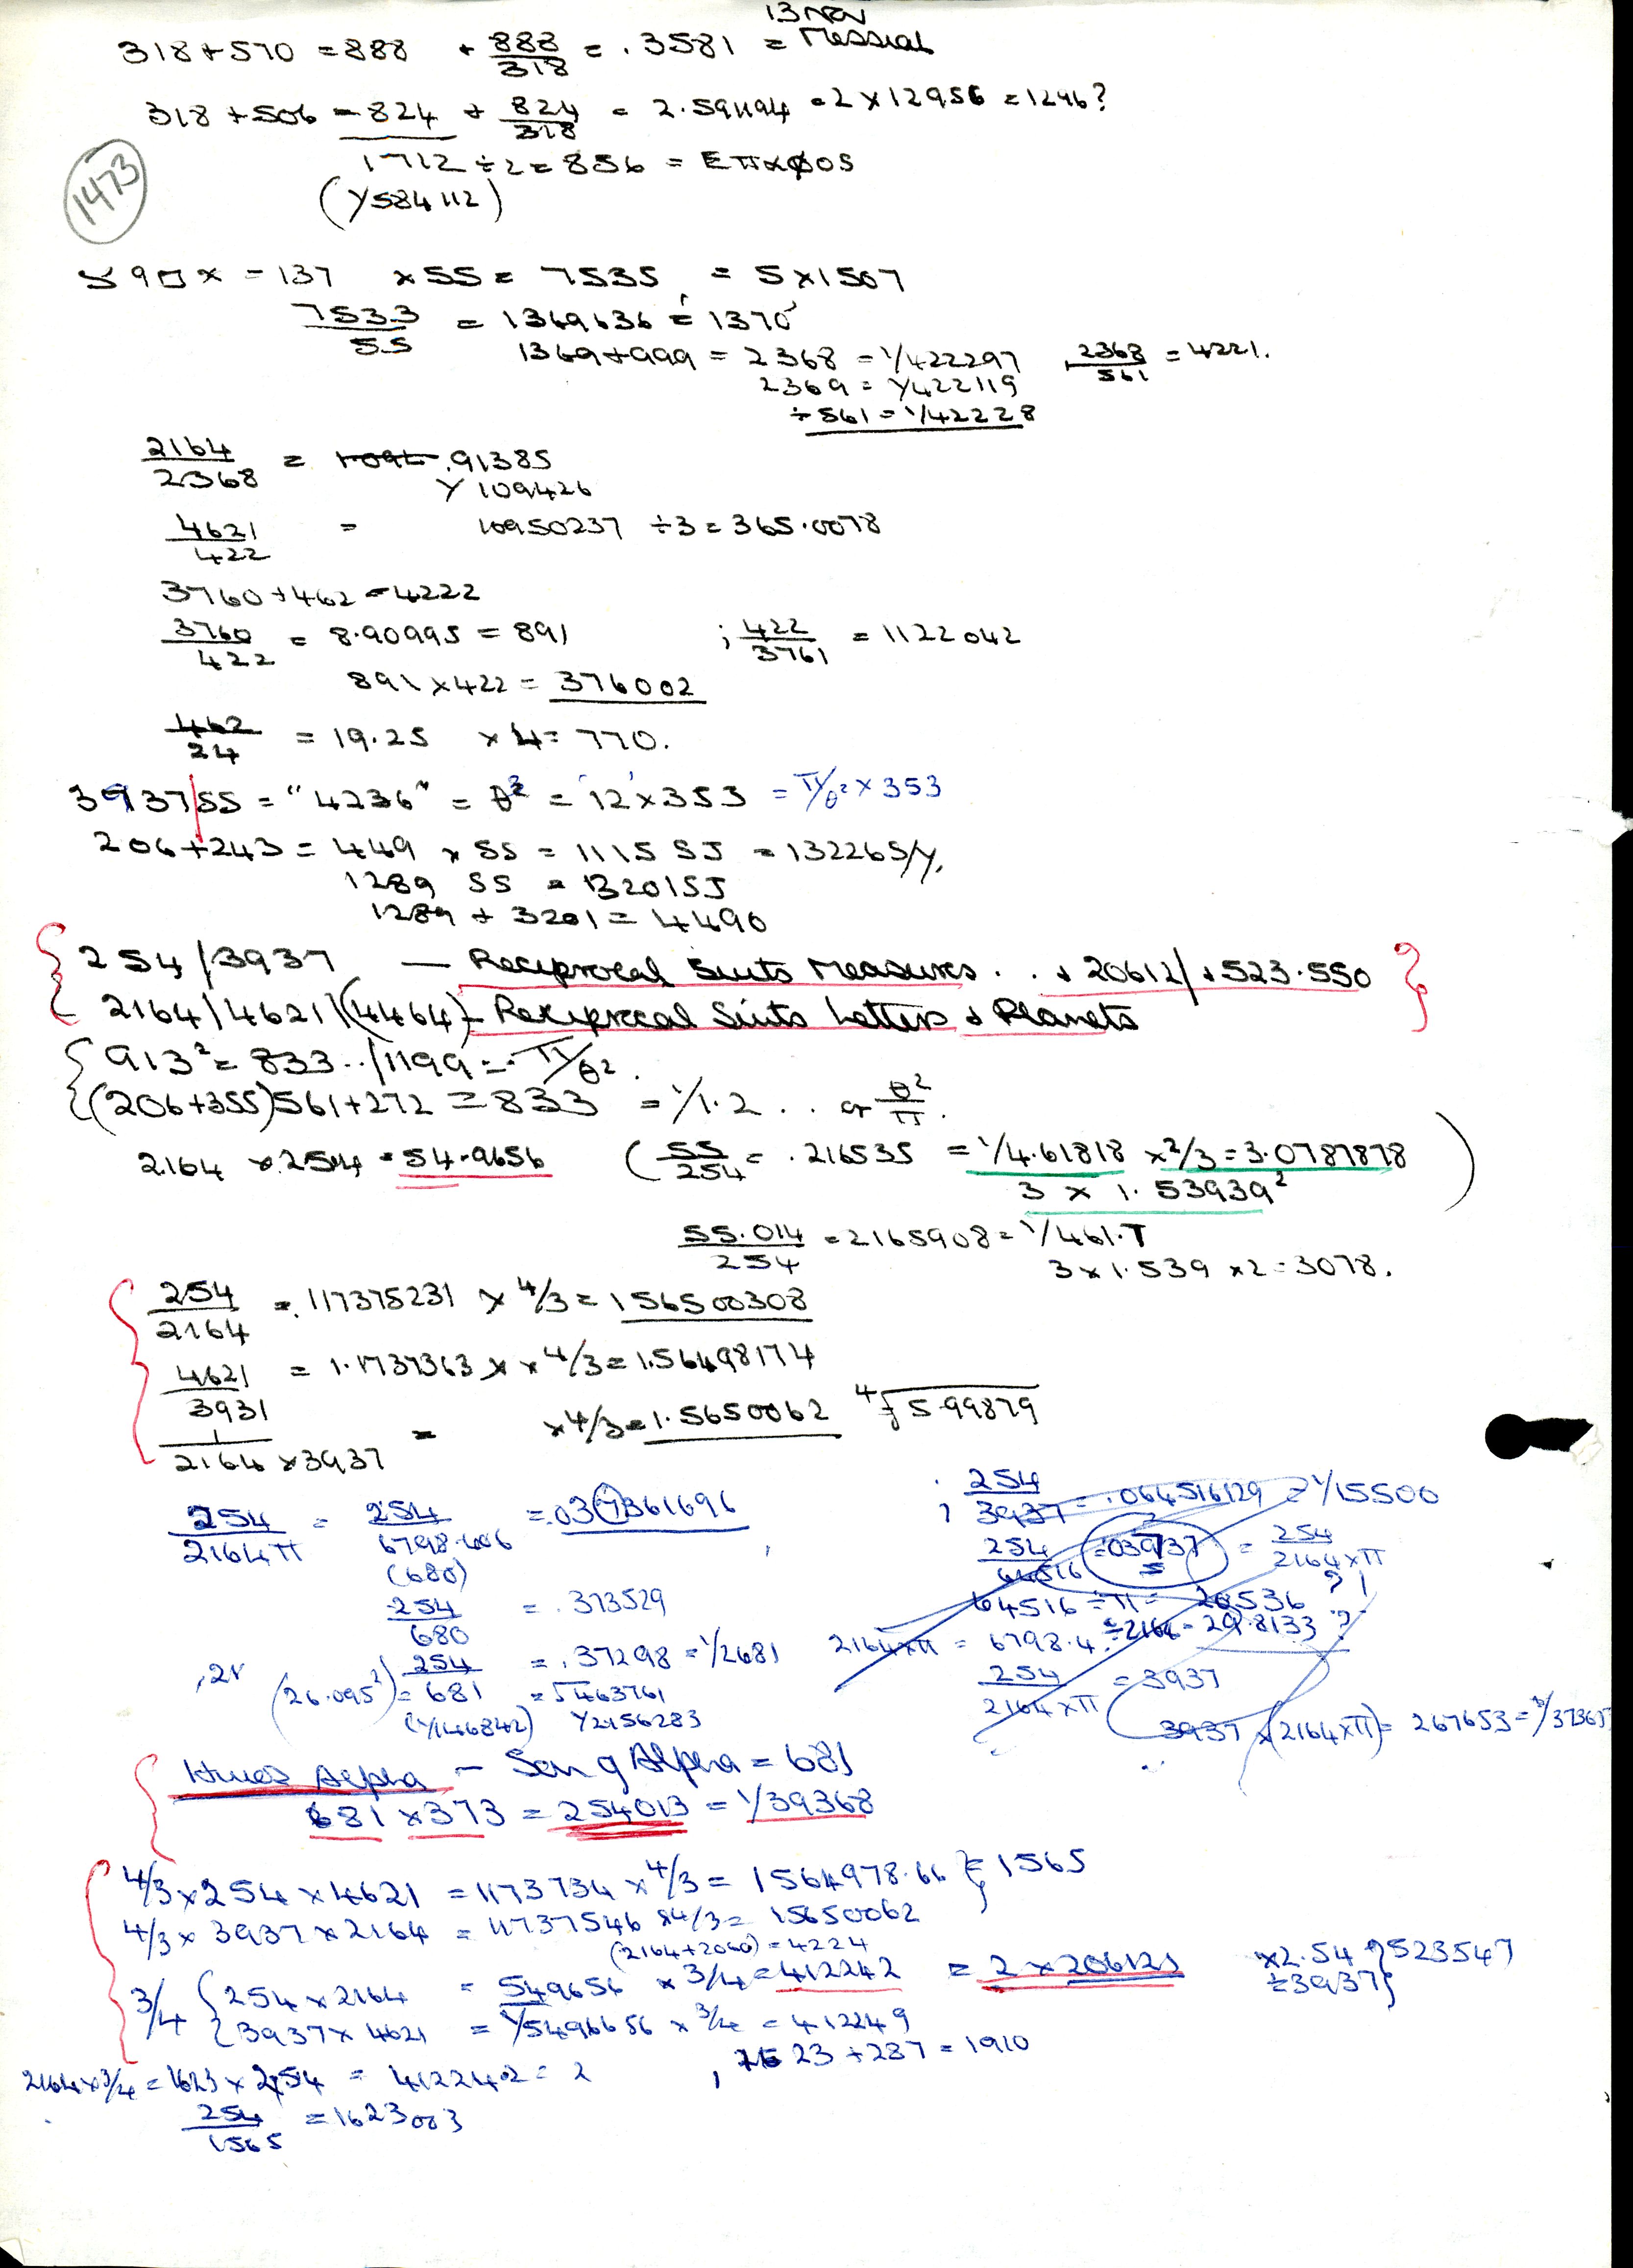 13 Nov
318+570 = 888 + 888/318 = .3581 = Messiah
318+506 = 824 + 824/318 = 2.591194 = 2 x 12956 = 1296?
1712 ÷ 2 = 856 = Επαφος
(1/584112)
1473
= 137 x 55 = 7535 = 5 x 1507
7533/55 = 1369636 = 1370
1369+999 = 2368 = 1/422297 2368/561 = 4221.
2369 = 1/422119
÷ 561 = 1/42228
2164/2368 = .91385
1/109426
4621/422 = 10950237 ÷ 3 = 365.0078
3760+462 = 4222
3760/422 = 8.90995 = 891 ; 422/3761 = 1122042
891 x 422 = 376002
462/24 = 19.25 x 4 = 770.
3937/55 = "4236" = θ³ = '12' x 353 = π/θ² x 353
206+243 = 449 x 55 = 1115 SJ = 132265/Y.
1289 55 = 13201SJ
1289 + 3201 = 4490
254/3937 — Reciprocal Suits Measures . . + 20612/+523.550
2164/4621/(4464) - Reciprocal Suits Letters & Planets
913² = 833../1199 = π/θ².
(206+355) 561+272 = 833 = 1/1.2 .. or θ²/π.
2164 x 254 = 54.9656 (55/254 = .216535 = 1/4.61818 x 2/3 = 3.0787878)
3 x 1.53939²
55.014/254 = 2165908 = 1/461.7
3 x 1.539 x 2 = 3078.
254/2164 = .117375231 x 4/3 = 156500308
4621/3931 = 1.1737363 x 4/3 = 1.56498174
1/2164 x 3937 = x 4/3 = 1.5650062 ⁴√5.99879
254/2164π = 254/6798.406 = .037361696
(680)
254/3937 = .064516129 = 1/15500
254/64516 = .03937 = 254/2164xπ
254/680 = .373529
64516 ÷ π = 20536 ?!
2164xπ = 6798.4 ÷ 2164 = 29.8133 ?
254/681 = .37298 = 1/2681
254/2164xπ = 3937
(26.095²) = 681 = √463761
(1/146842) 1/2156283
3937 x (2164xπ) = 267653 = 1/373617
Huios Alpha — Son of Alpha = 681
681 x 373 = 254013 = 1/39368
4/3 x 254 x 4621 = 1173734 x 4/3 = 1564978.66 } = 1565
4/3 x 3937 x 2164 = 11737546 x 4/3 = 15650062
(2164+2060) = 4224
3/4 { 254 x 2164 = 549656 x 3/4 = 412242 = 2 x 206121 x2.54 } 523547
{ 3937 x 4621 = 1/5496656 x 3/4 = 412249 ÷3937 }
23 + 287 = 1910
2164 x 3/4 = 1623 x 254 = 412242 = 2
254/1565 = 1623003